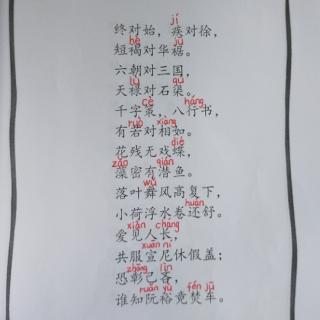 jí
终对始，疾对徐，
hè jū
短褐对华裾。
六朝对三国，
lù qú
天禄对石渠。
cè háng
千字策，八行书，
ruò xiàng
有若对相如。
dié
花残无戏蝶，
zǎo qián
藻密有潜鱼。
wǔ
落叶舞风高复下，
huán
小荷浮水卷还舒。
xiàn cháng
爱见人长，
xuān ní
共服宣尼休假盖；
zhāng lìn
恐彰己吝，
ruǎn yù fén jū
谁知阮裕竟焚车。